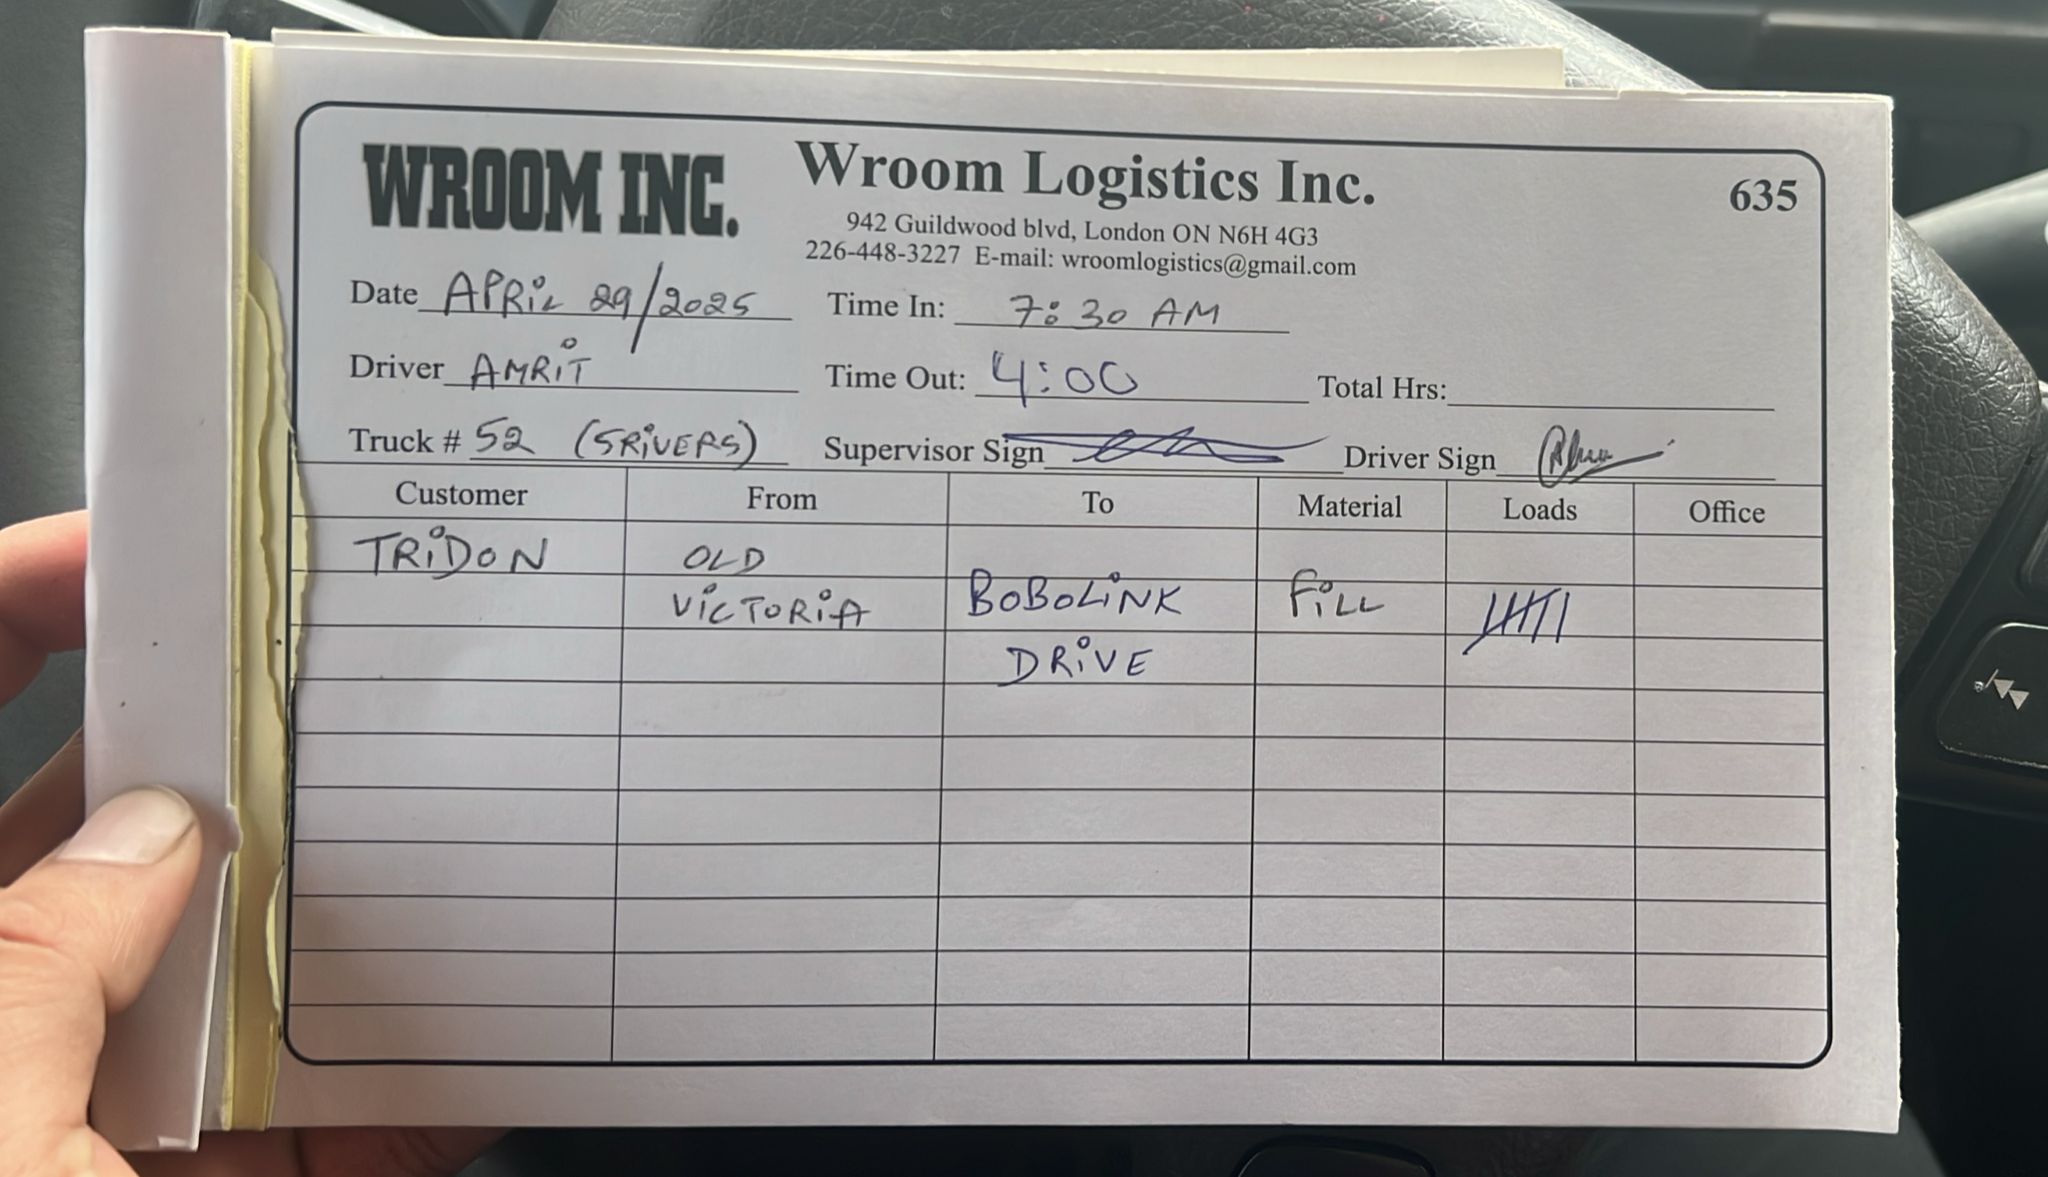 WROOM INC.
Wroom Logistics Inc.
635
942 Guildwood blvd, London ON N6H 4G3
226-448-3227 E-mail: wroomlogistics@gmail.com
Date APRIL 29/2025 Time In: 7:30 AM
Driver AMRIT Time Out: 4:00 Total Hrs:
Truck # 52 (5RIVERS) Supervisor Sign Driver Sign
Customer From To Material Loads Office
TRIDON OLD
VICTORIA BOBOLINK FILL
DRIVE